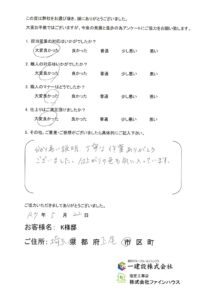 この度は弊社をお選び頂き、誠にありがとうございました。
大変お手数ではございますが、今後の発展と進歩の為アンケートにご協力をお願い致します。
1 担当営業の対応はいかがでしたか?
大変良かった 良かった 普通 少し悪い 悪い
2 職人の対応はいかがでしたか?
大変良かった 良かった 普通 少し悪い 悪い
3 職人のマナーはどうでしたか?
大変良かった 良かった 普通 少し悪い 悪い
4 仕上がりはご満足頂けましたか?
大変良かった 良かった 普通 少し悪い 悪い
5 その他、ご意見・ご感想がございましたら具体的にご記入下さい。
説明 丁寧な作業ありがとう
ございました。仕上がりの色も気に入っています。
ご協力いただきましてありがとうございました。
R7年 5月 22日
お客様名: K様邸
ご住所: 埼玉 県 都 府 上尾 市 区 町
一建設株式会社
指定工事店
株式会社ファインハウス